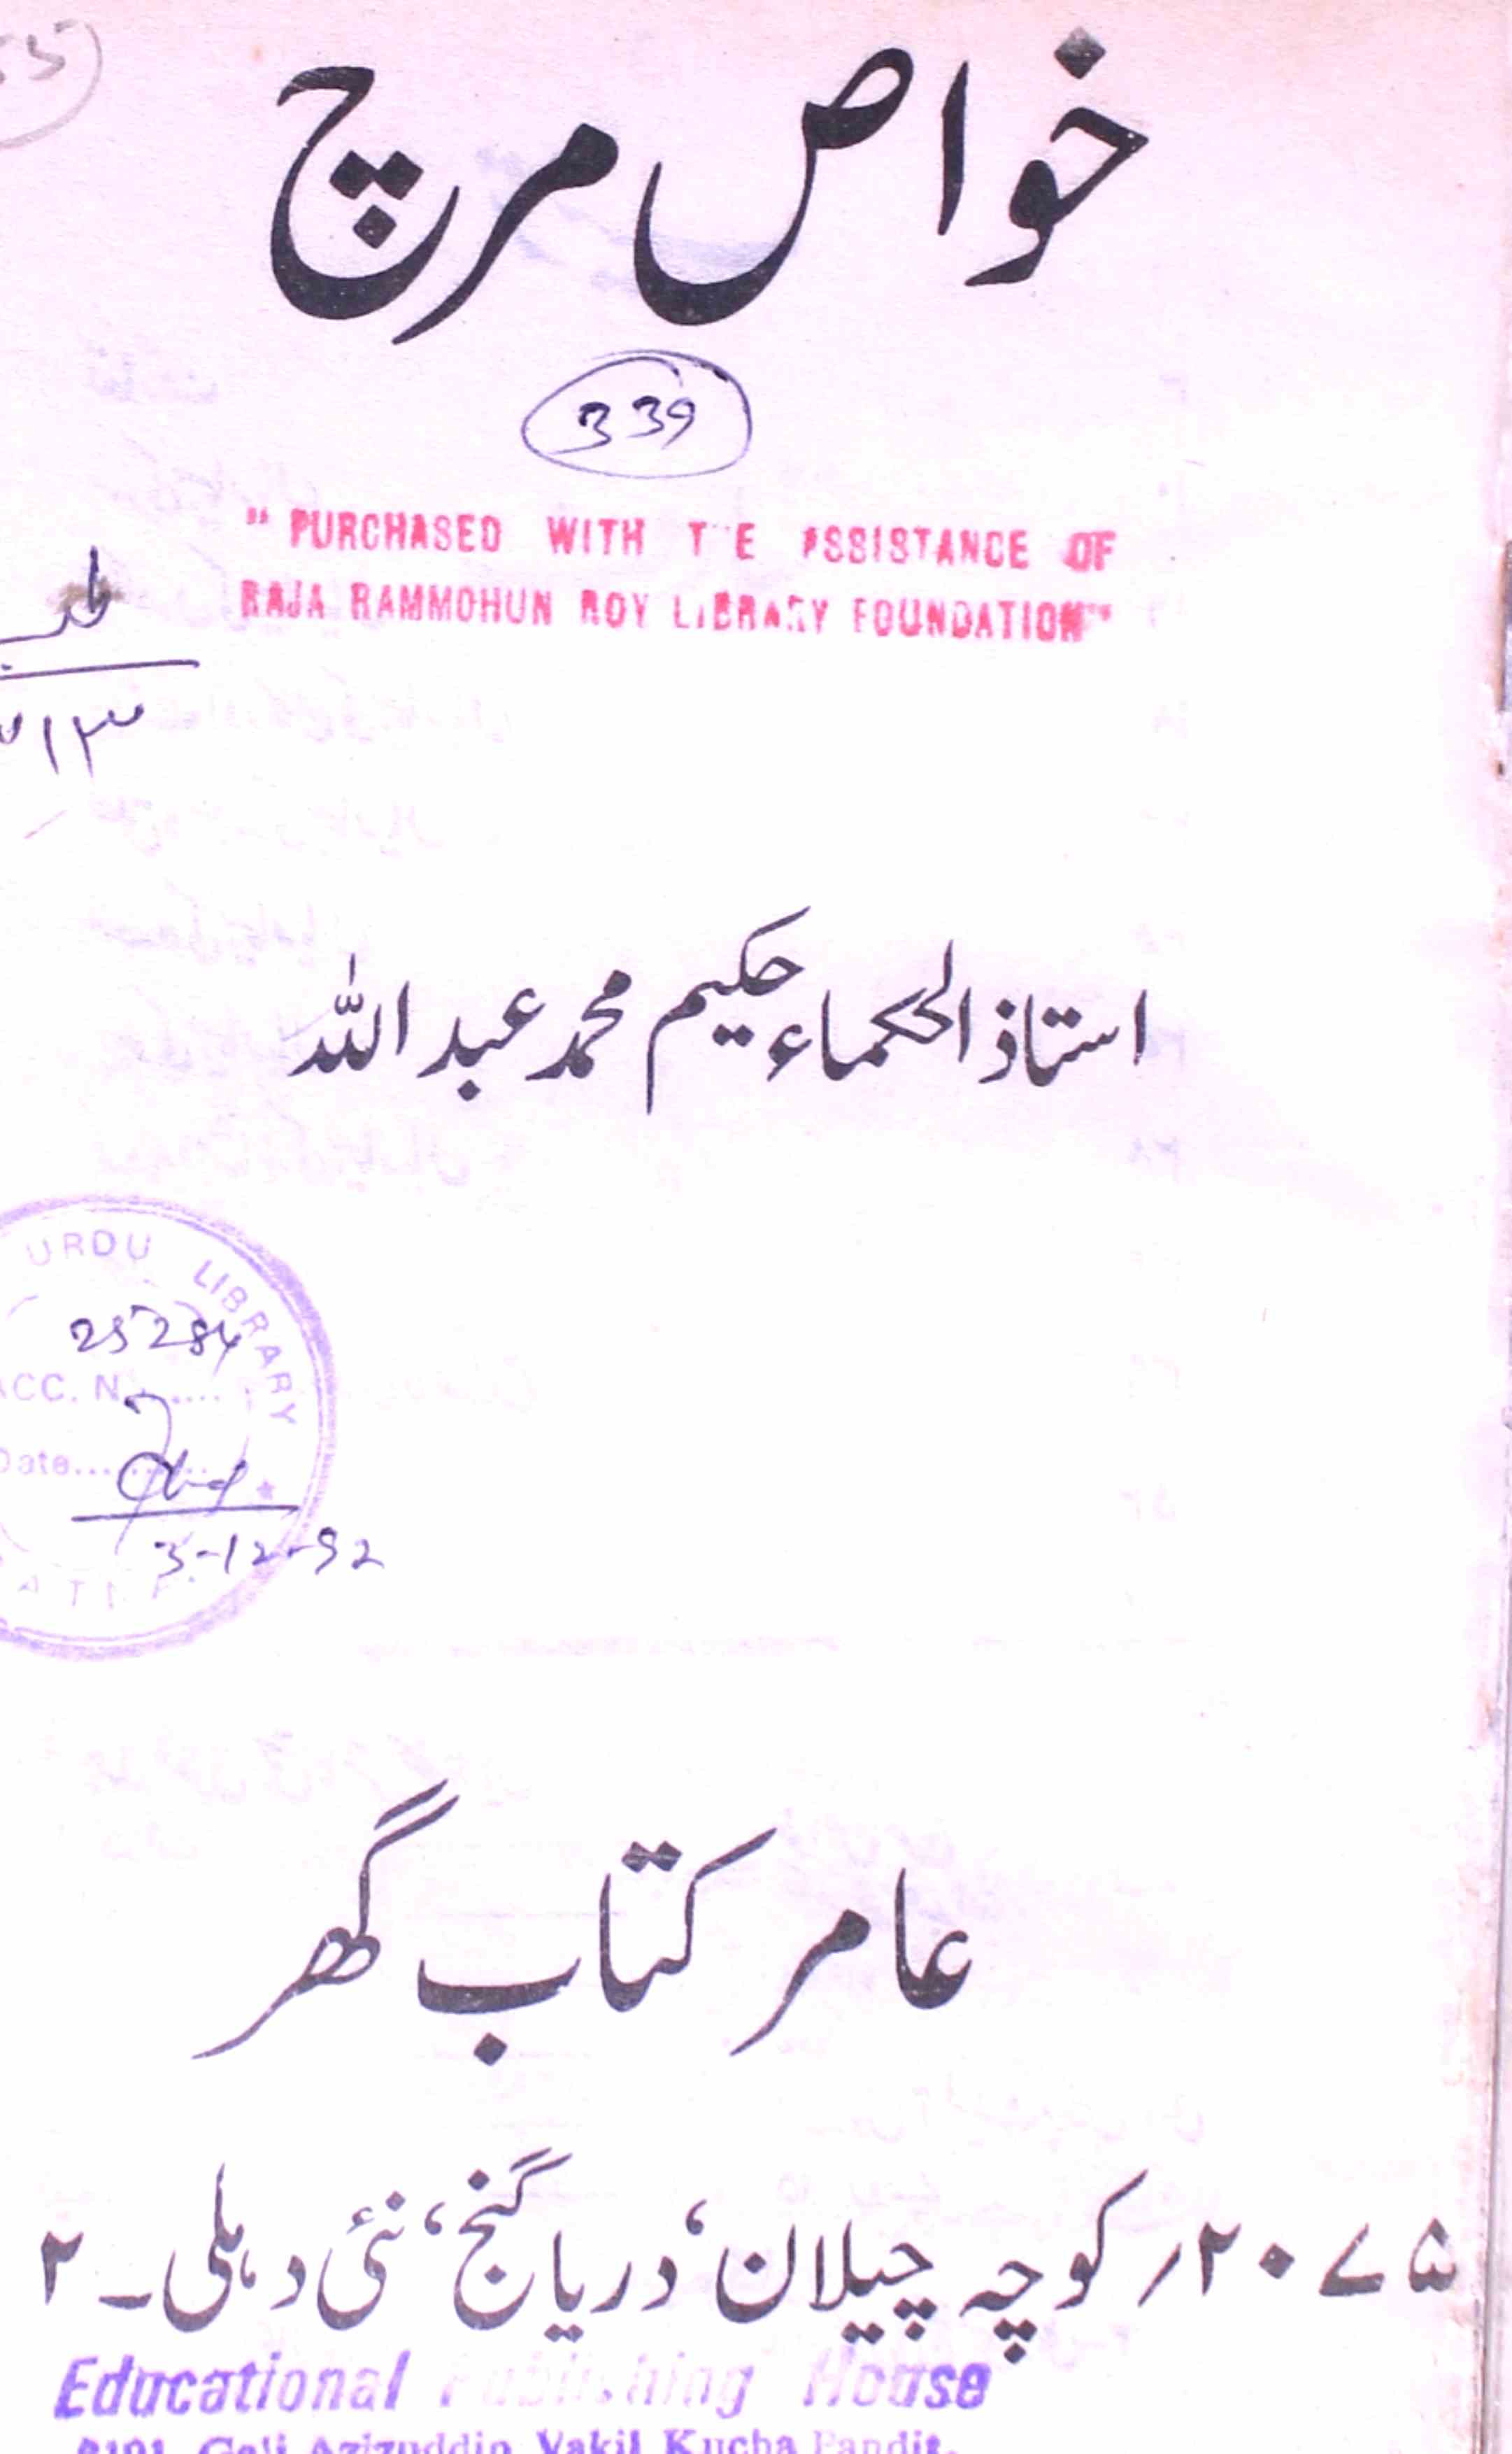 خواص مرچ
339
" PURCHASED WITH T E ASSISTANCE OF
RAJA RAMMOHUN ROY LIBRARY FOUNDATION"
طب
۳۱۳
استاذ الحکماء حکیم محمد عبد اللہ
URDU LIBRARY
25284
ACC. N
Date
3-12-92
عامر کتاب گھر
۲۰۷۵؍ کوچہ چیلان، دریا گنج، نئی دہلی ۔ ۲
Educational Publishing House
3191, Gali Azizuddin Vakil Kucha Pandit,